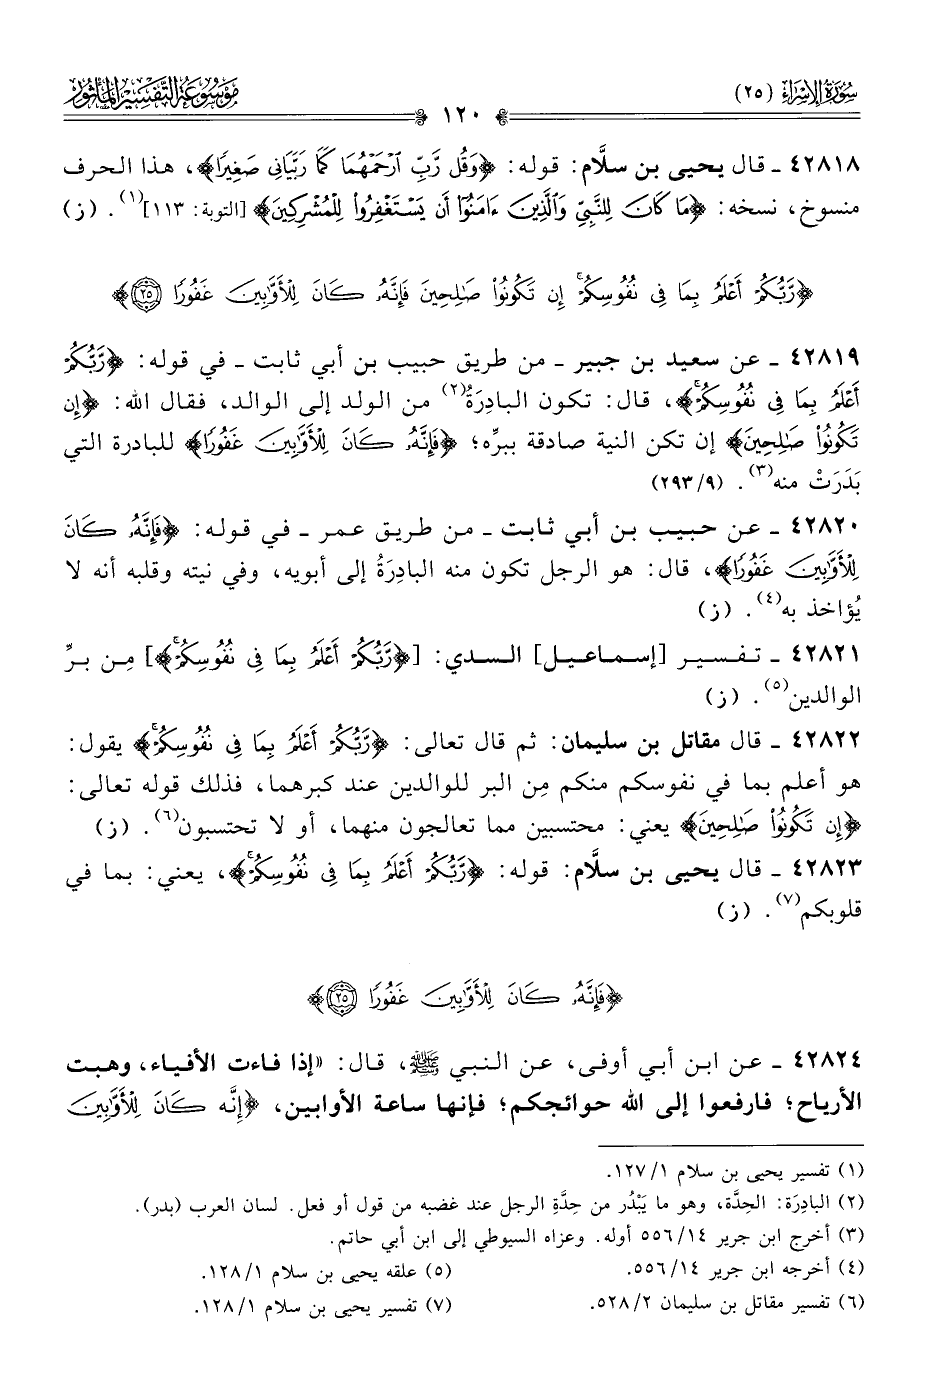 سورة الإسراء (٢٥)
١٢٠
موسوعة التفسير المأثور
٤٢٨١٨ ـ قال يحيى بن سلَّام: قوله: ﴿وَقُل رَّبِّ ٱرۡحَمۡهُمَا كَمَا رَبَّيَانِي صَغِيرٗا﴾، هذا الحرف
منسوخ، نسخه: ﴿مَا كَانَ لِلنَّبِيِّ وَٱلَّذِينَ ءَامَنُوٓاْ أَن يَسۡتَغۡفِرُواْ لِلۡمُشۡرِكِينَ﴾ [التوبة: ١١٣](١). (ز)
﴿رَّبُّكُمۡ أَعۡلَمُ بِمَا فِي نُفُوسِكُمۡۚ إِن تَكُونُواْ صَٰلِحِينَ فَإِنَّهُۥ كَانَ لِلۡأَوَّٰبِينَ غَفُورٗا ٢٥﴾
٤٢٨١٩ ـ عن سعيد بن جبير ـ من طريق حبيب بن أبي ثابت ـ في قوله: ﴿رَّبُّكُمۡ
أَعۡلَمُ بِمَا فِي نُفُوسِكُمۡۚ﴾، قال: تكون البادِرَةُ(٢) من الولد إلى الوالد، فقال الله: ﴿إِن
تَكُونُواْ صَٰلِحِينَ﴾ إن تكن النية صادقة ببرِّه؛ ﴿فَإِنَّهُۥ كَانَ لِلۡأَوَّٰبِينَ غَفُورٗا﴾ للبادرة التي
بَدَرَتْ منه(٣). (٢٩٣/٩)
٤٢٨٢٠ ـ عن حبيب بن أبي ثابت ـ من طريق عمر ـ في قوله: ﴿فَإِنَّهُۥ كَانَ
لِلۡأَوَّٰبِينَ غَفُورٗا﴾، قال: هو الرجل تكون منه البادِرَةُ إلى أبويه، وفي نيته وقلبه أنه لا
يُؤاخذ به(٤). (ز)
٤٢٨٢١ ـ تفسير [إسماعيل] السدي: [﴿رَّبُّكُمۡ أَعۡلَمُ بِمَا فِي نُفُوسِكُمۡۚ﴾] مِن برِّ
الوالدين(٥). (ز)
٤٢٨٢٢ ـ قال مقاتل بن سليمان: ثم قال تعالى: ﴿رَّبُّكُمۡ أَعۡلَمُ بِمَا فِي نُفُوسِكُمۡۚ﴾ يقول:
هو أعلم بما في نفوسكم منكم مِن البر للوالدين عند كبرهما، فذلك قوله تعالى:
﴿إِن تَكُونُواْ صَٰلِحِينَ﴾ يعني: محتسبين مما تعالجون منهما، أو لا تحتسبون(٦). (ز)
٤٢٨٢٣ ـ قال يحيى بن سلَّام: قوله: ﴿رَّبُّكُمۡ أَعۡلَمُ بِمَا فِي نُفُوسِكُمۡۚ﴾، يعني: بما في
قلوبكم(٧). (ز)
﴿فَإِنَّهُۥ كَانَ لِلۡأَوَّٰبِينَ غَفُورٗا ٢٥﴾
٤٢٨٢٤ ـ عن ابن أبي أوفى، عن النبي ﷺ، قال: «إذا فاءت الأفياء، وهبت
الأرياح؛ فارفعوا إلى الله حوائجكم؛ فإنها ساعة الأوابين، ﴿إِنَّه كَانَ لِلۡأَوَّٰبِينَ
(١) تفسير يحيى بن سلام ١٢٧/١.
(٢) البادِرَة: الحِدَّة، وهو ما يَبْدُر من حِدَّةِ الرجل عند غضبه من قول أو فعل. لسان العرب (بدر).
(٣) أخرج ابن جرير ٥٥٦/١٤ أوله. وعزاه السيوطي إلى ابن أبي حاتم.
(٤) أخرجه ابن جرير ٥٥٦/١٤. (٥) علقه يحيى بن سلام ١٢٨/١.
(٦) تفسير مقاتل بن سليمان ٥٢٨/٢. (٧) تفسير يحيى بن سلام ١٢٨/١.